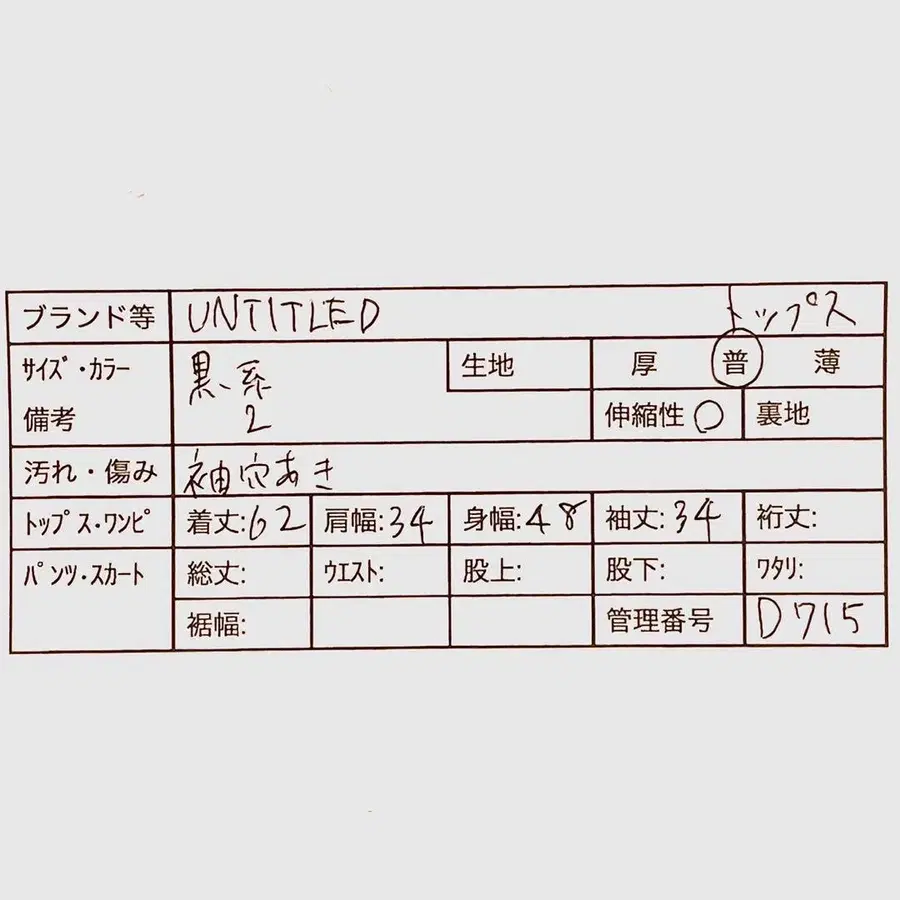 ブランド等 UNTITLED トップス
ｻｲｽﾞ・ｶﾗｰ 黒系 生地 厚 普 薄
備考 2 伸縮性 ○ 裏地
汚れ・傷み 袖穴あき
ﾄｯﾌﾟｽ・ﾜﾝﾋﾟ 着丈:62 肩幅:34 身幅:48 袖丈:34 裄丈:
ﾊﾟﾝﾂ・ｽｶｰﾄ 総丈: ｳｴｽﾄ: 股上: 股下: ﾜﾀﾘ:
裾幅: 管理番号 D715